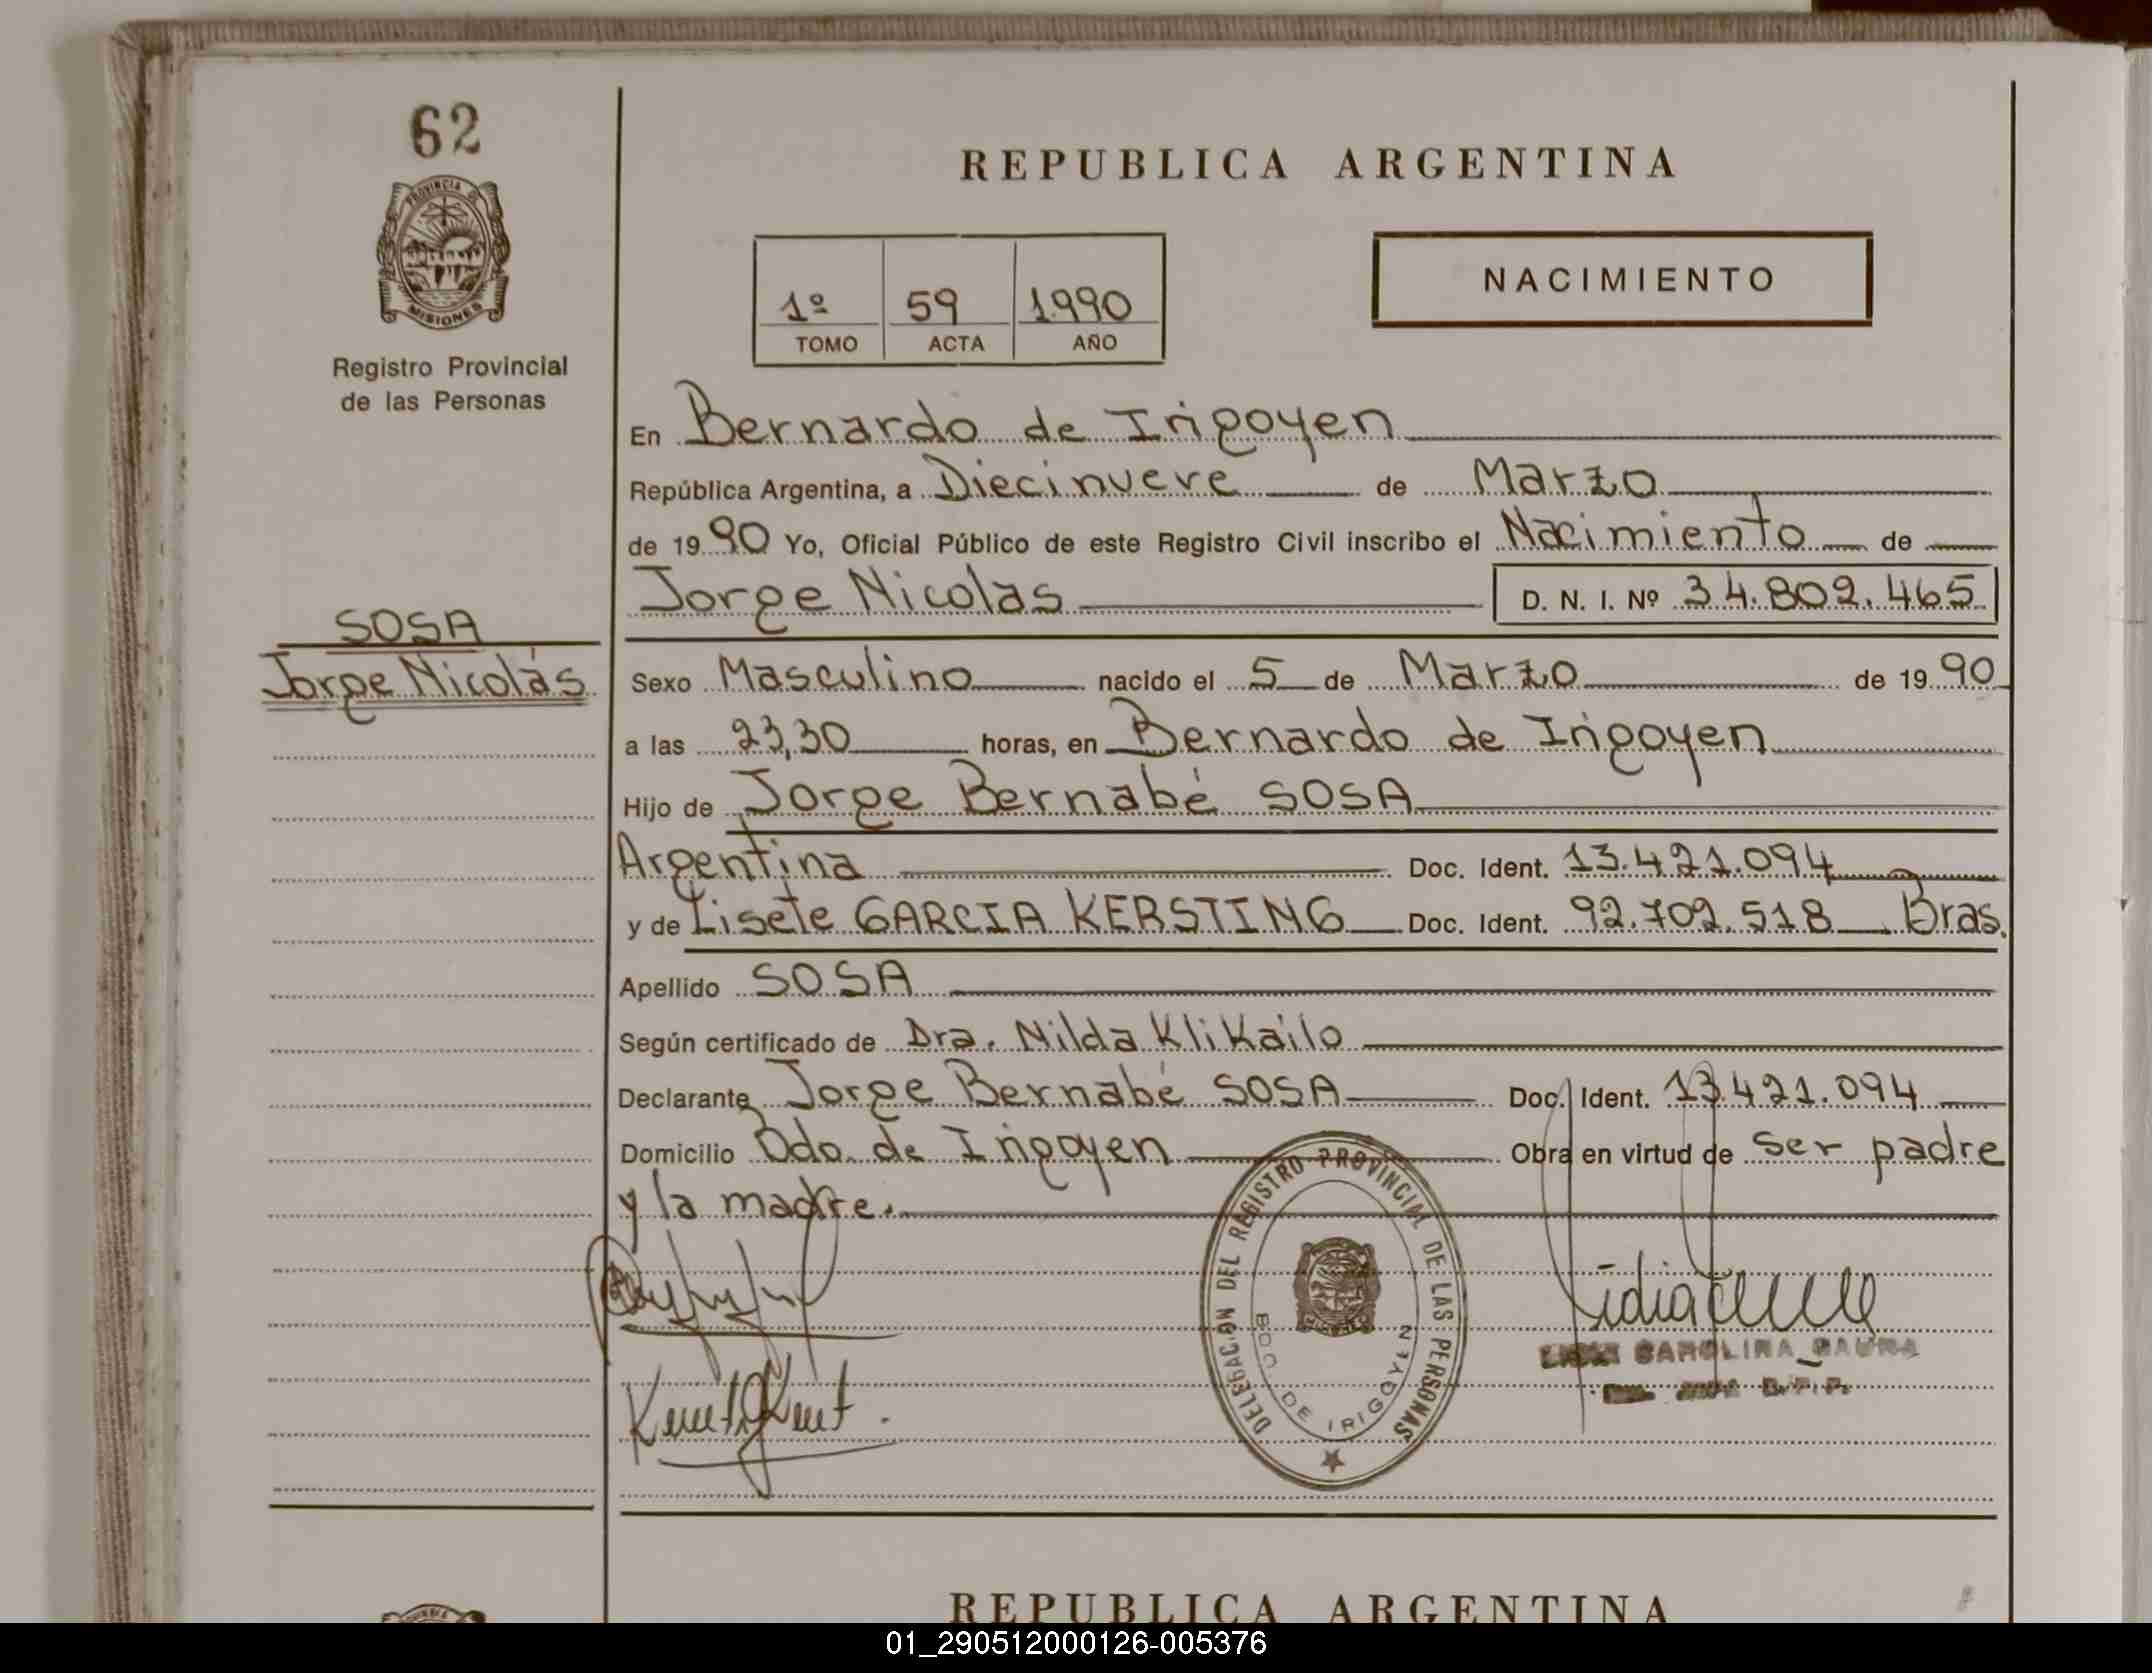 62
PROVINCIA DE
MISIONES
Registro Provincial
de las Personas
SOSA
Jorge Nicolás
REPUBLICA ARGENTINA
NACIMIENTO
1º 59 1990
TOMO ACTA AÑO
En Bernardo de Irigoyen
República Argentina, a Diecinueve de Marzo
de 1990 Yo, Oficial Público de este Registro Civil inscribo el Nacimiento de
Jorge Nicolas D. N. I. Nº 34.802.465
Sexo Masculino nacido el 5 de Marzo de 1990
a las 23,30 horas, en Bernardo de Irigoyen
Hijo de Jorge Bernabé SOSA
Argentina Doc. Ident. 13.421.094
y de Lisete GARCIA KERSTING Doc. Ident. 92.702.518 Bras.
Apellido SOSA
Según certificado de Dra. Nilda Klikailo
Declarante Jorge Bernabé SOSA Doc. Ident. 13.421.094
Domicilio Bdo. de Irigoyen Obra en virtud de ser padre
y la madre.
DELEGACION DEL REGISTRO PROVINCIAL DE LAS PERSONAS
BDO DE IRIGOYEN
CAROLINA
REPUBLICA ARGENTINA
01_290512000126-005376